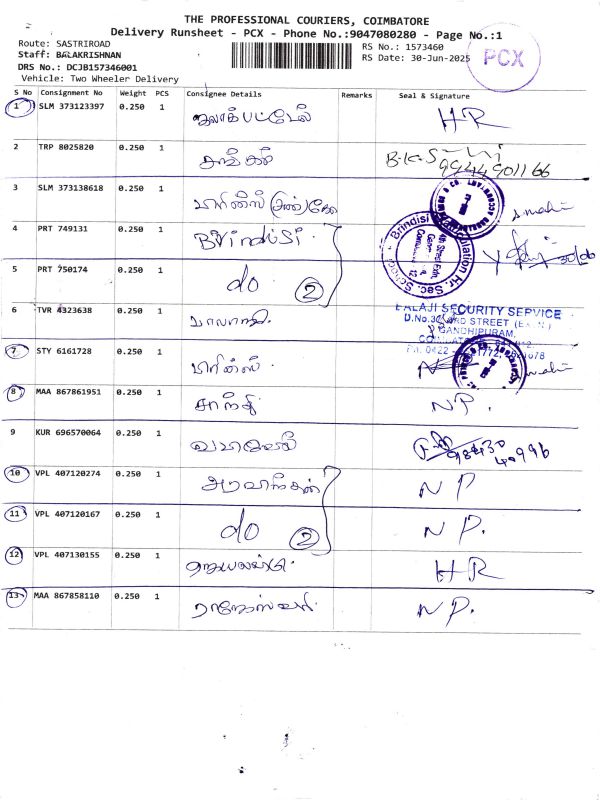 THE PROFESSIONAL COURIERS, COIMBATORE
Delivery Runsheet - PCX - Phone No.:9047080280 - Page No.:1
Route: SASTRIROAD
RS No.: 1573460
Staff: BALAKRISHNAN
RS Date: 30-Jun-2025
PCX
DRS No.: DCJB157346001
Vehicle: Two Wheeler Delivery
S No Consignment No Weight PCS Consignee Details Remarks Seal & Signature
1 SLM 373123397 0.250 1 HR
2 TRP 8025820 0.250 1 99444901166
3 SLM 373138618 0.250 1
4 PRT 749131 0.250 1 Brindisi
5 PRT 750174 0.250 1 do 2
6 TVR 4323638 0.250 1 பாலாஜி BALAJI SECURITY SERVICE
GANDHIPURAM,
7 STY 6161728 0.250 1 பிரின்ஸ்
8 MAA 867861951 0.250 1 சாந்தி NP.
9 KUR 696570064 0.250 1
10 VPL 407120274 0.250 1 அரவிந்தன் NP
11 VPL 407120167 0.250 1 do 2 NP.
12 VPL 407130155 0.250 1 HR
13 MAA 867858110 0.250 1 ராஜேஸ்வரி NP.